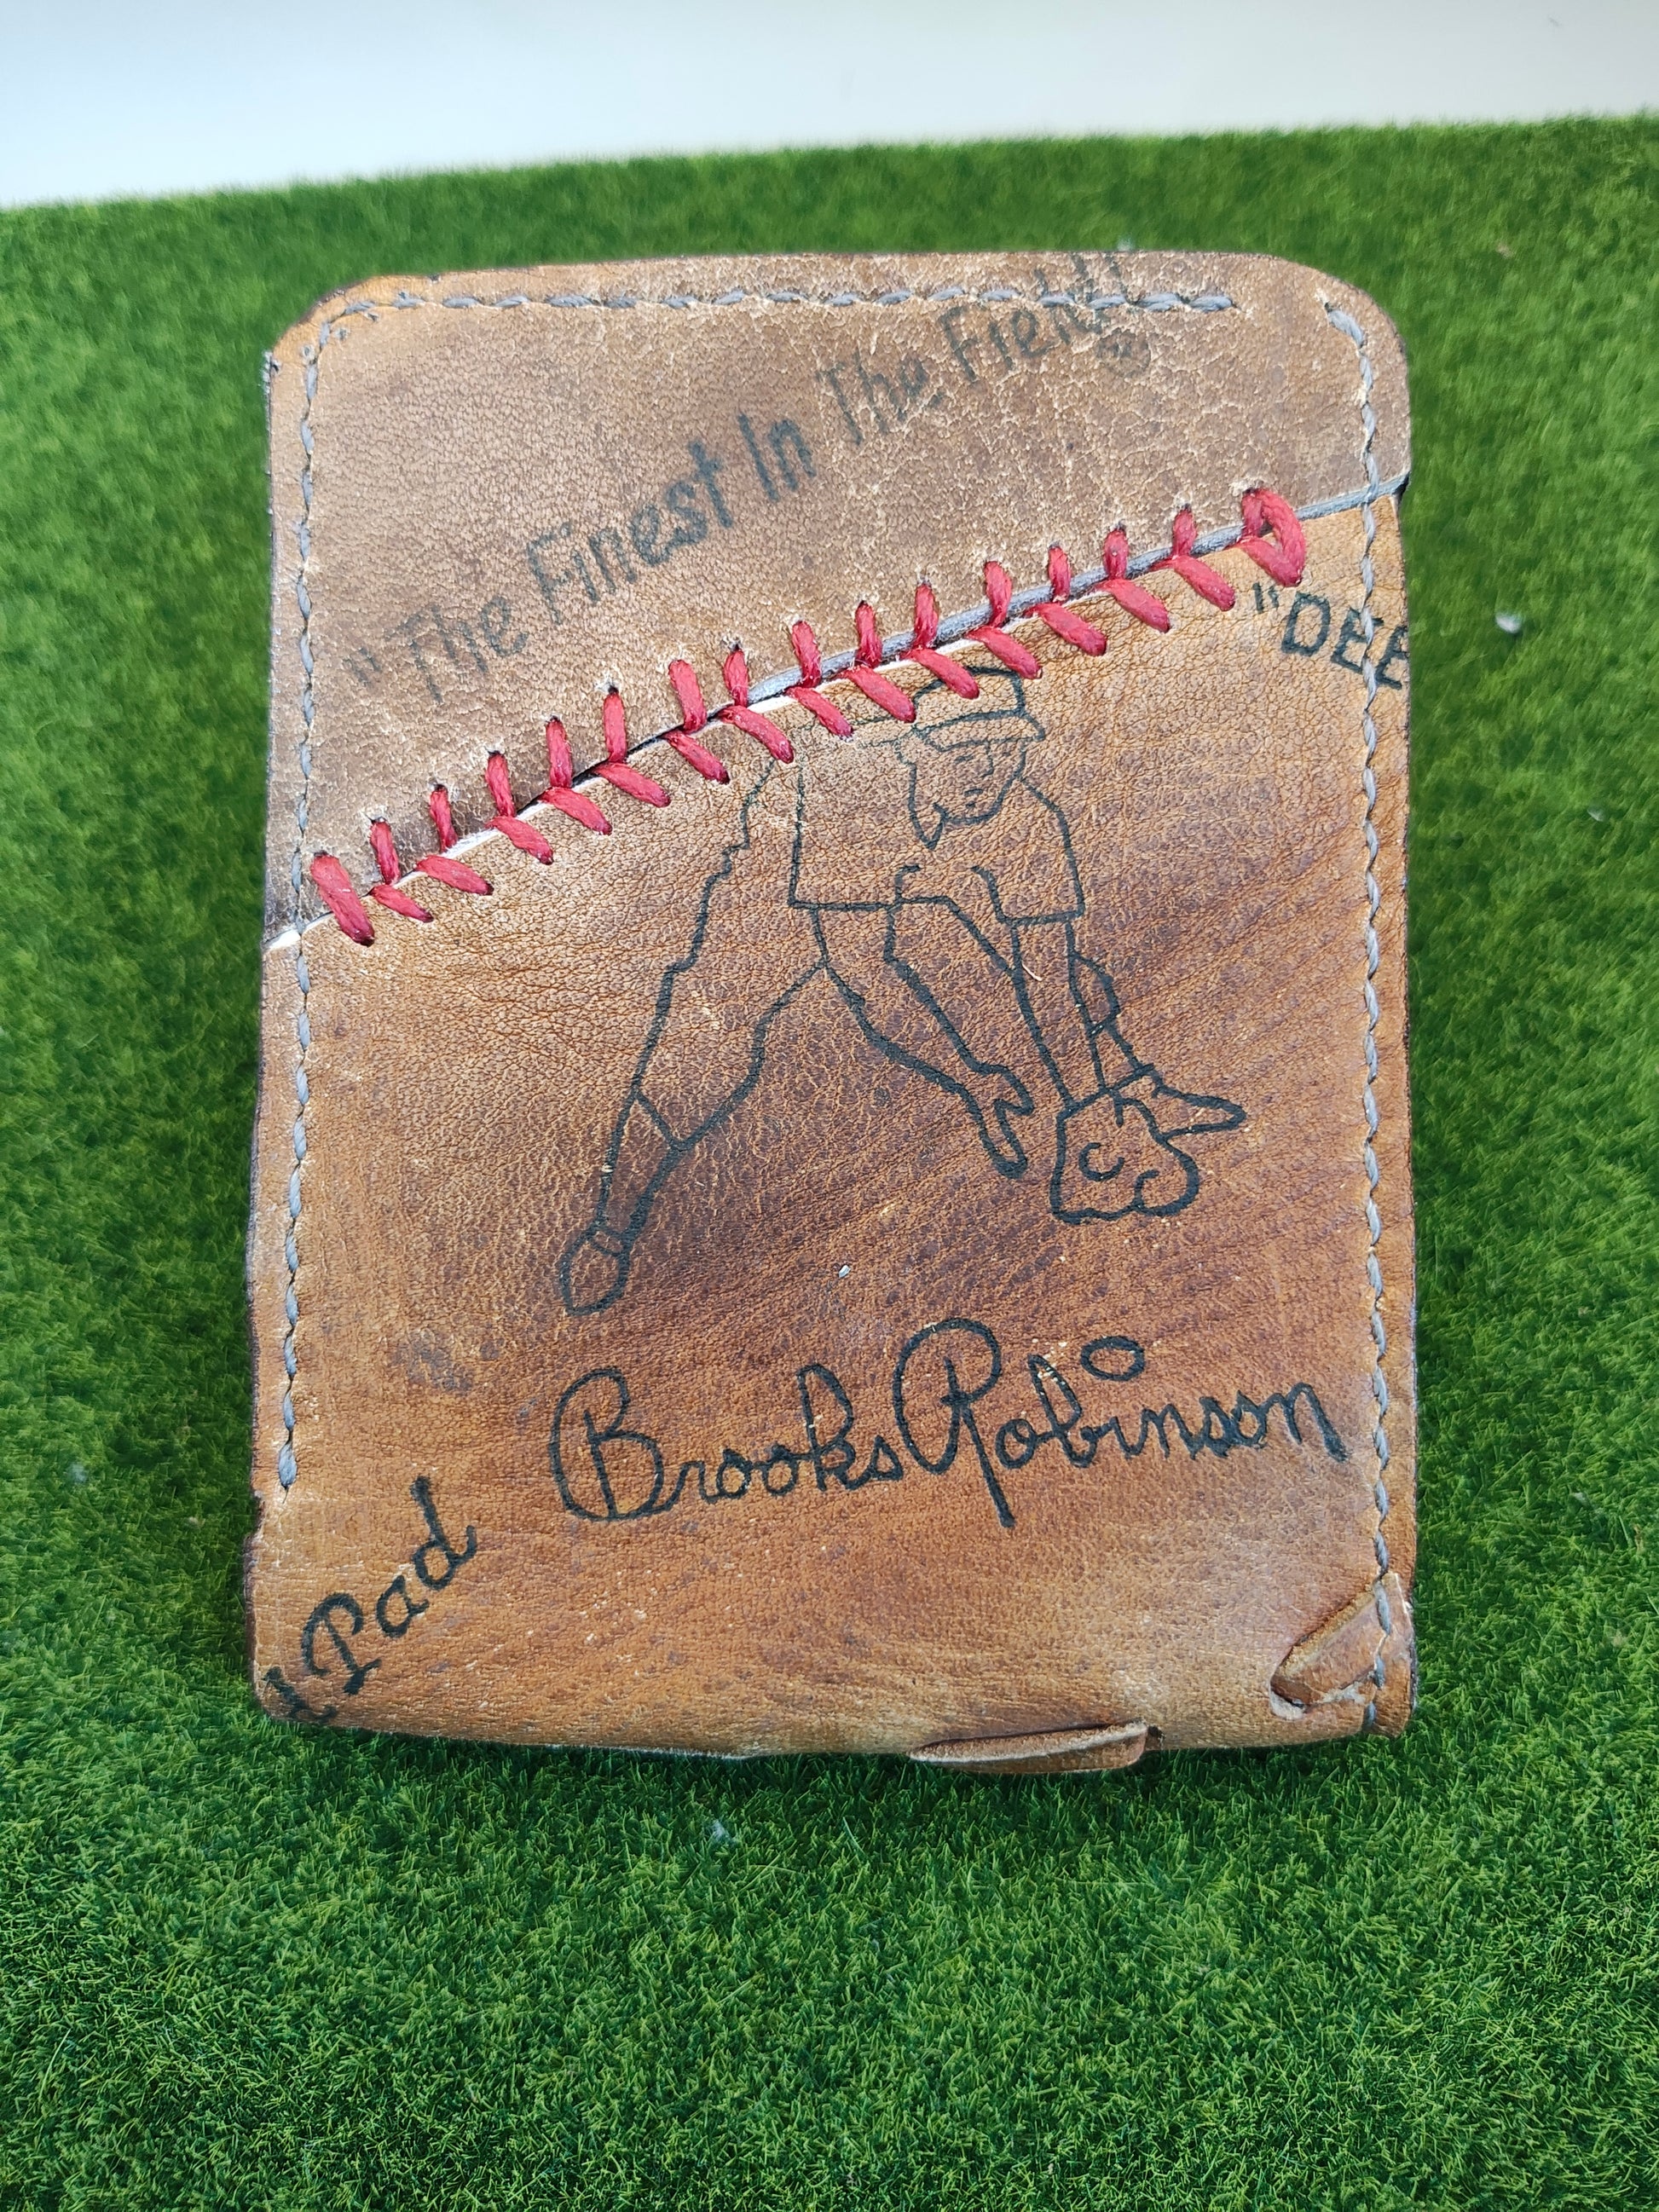 "The Finest In The Field!"
"DEE
Brooks Robinson
d Pad